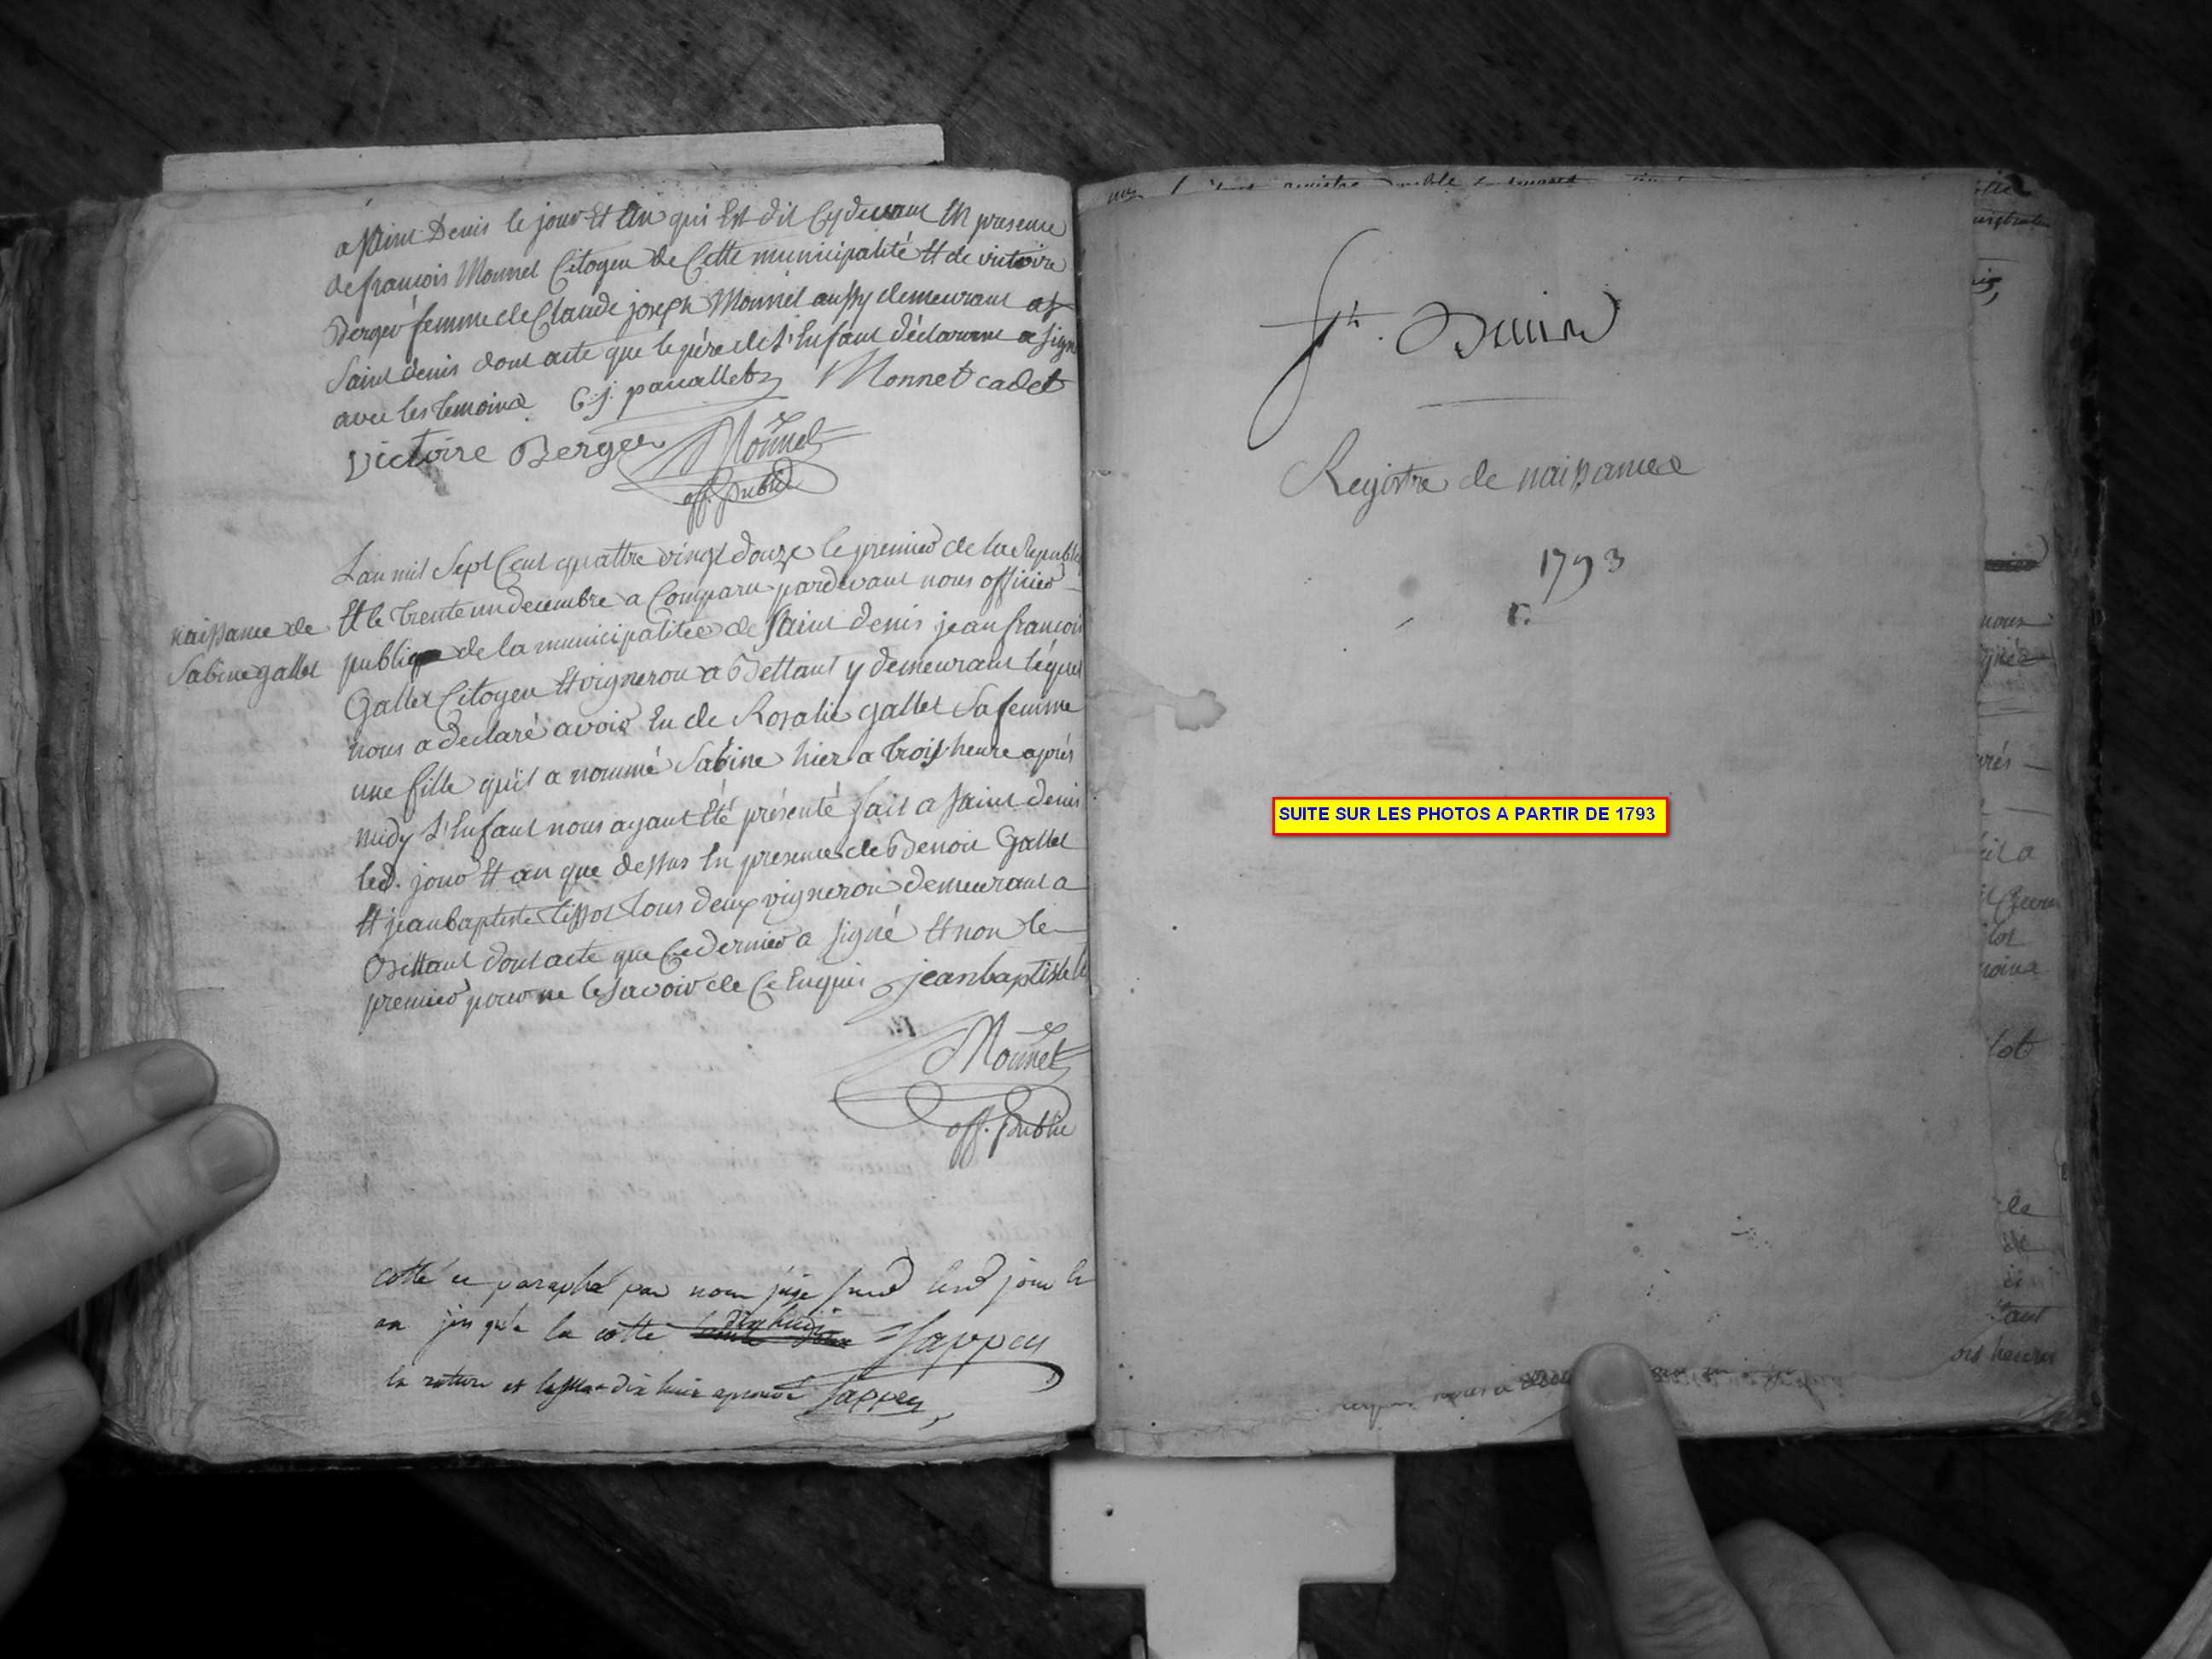 a saint Denis le jour Et An qui Est dit Cy devant En presence
de françois Monnet Citoyen de Cette municipalité Et de victoire
Berger femme de Claude joseph Monnet aussy demeurant a
Saint denis dont acte que le pére de L'Enfant déclarant a signé
avec les temoins C. j. Monnet cadet
Victoire Berger Monnet
off. public
Lan mil Sept Cent quattre vingt douze le premier de la Republi
naissance de
Sabine gallet
Et le trente un decembre a Comparu pardevant nous officier
public de la municipalitée de Saint denis jean françois
Gallet Citoyen Et vigneron a Bettant y demeurant lequel
nous a declaré avoir Eu de Rosalie gallet Sa femme
une fille qu'il a nommé Sabine hier a trois heure aprés
midy L'Enfant nous ayant Eté présenté fait a Saint denis
led. jour Et an que dessus En presence de Benoit Gallet
Et jean baptiste tissot tous deux vigneron demeurant a
Bettant dont acte que Ce dernier a signé Et non le
premier pour ne le Savoir de Ce Enquis jean baptiste
Monnet
off. public
cotté et paraphé par nous juge led jour et
an jusqu'a la cotte dix huit Sappey
la rature et dix huit aprouvé Sappey
St. Denis
Registre de naissances
1793
SUITE SUR LES PHOTOS A PARTIR DE 1793